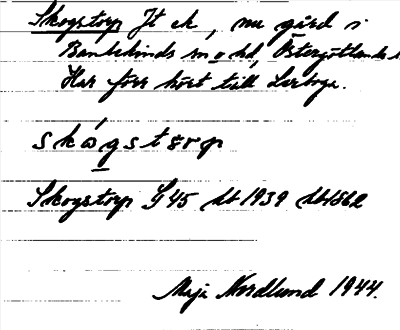 Skogstorp Jt ek, nu gård i
Bankekinds sn o hd, Östergötlands l
Har förr hört till Lerboga.
skógstorp
Skogstorp G 45 db 1939 db 1562
Maja Nordlund 1944.